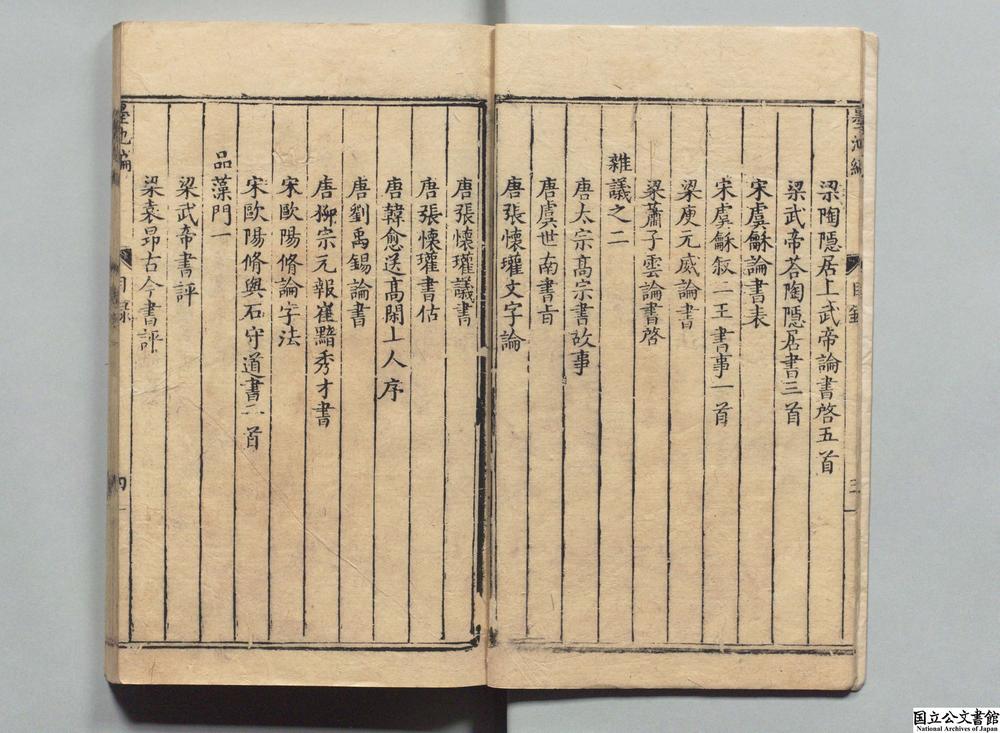 墨池編
目録
三
梁陶隱居上武帝論書啓五首
梁武帝荅陶隱居書三首
宋虞龢論書表
宋虞龢叙二王書事一首
梁庾元威論書
梁蕭子雲論書啓
雜議之二
唐太宗高宗書故事
唐虞世南書旨
唐張懷瓘文字論
唐張懷瓘議書
唐張懷瓘書估
唐韓愈送高閑上人序
唐劉禹錫論書
唐柳宗元報崔黯秀才書
宋歐陽脩論字法
宋歐陽脩與石守道書二首
品藻門一
梁武帝書評
梁袁昂古今書評
墨池編
目録
四
国立公文書館
National Archives of Japan